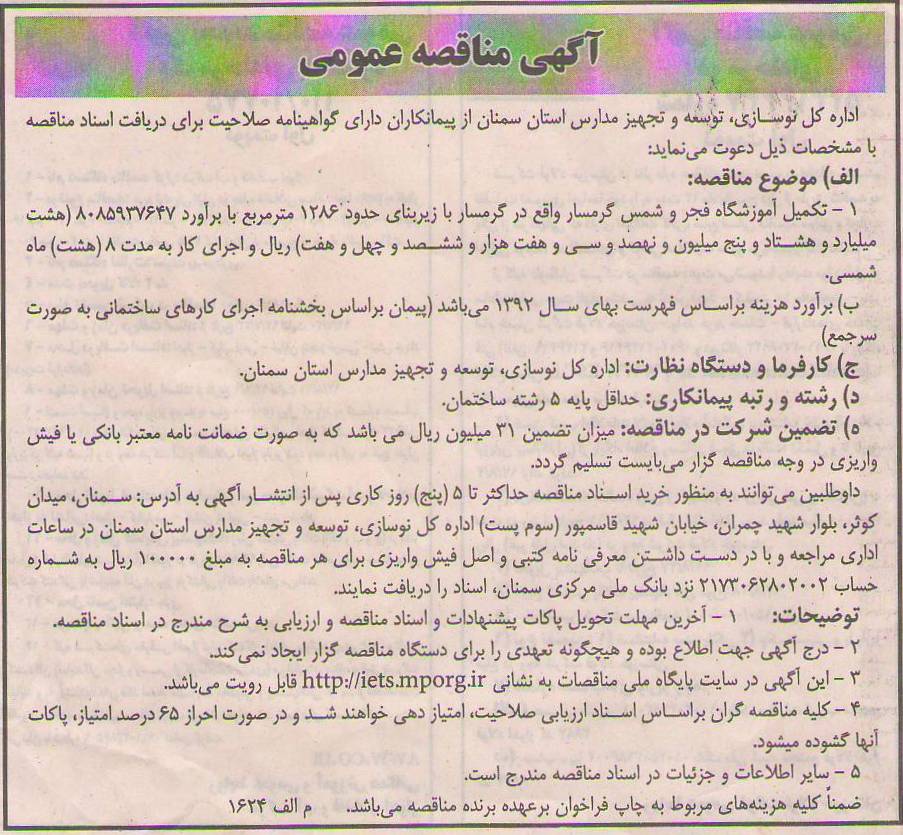 آگهی مناقصه عمومی
اداره کل نوسازی، توسعه و تجهیز مدارس استان سمنان از پیمانکاران دارای گواهینامه صلاحیت برای دریافت اسناد مناقصه
با مشخصات ذیل دعوت می‌نماید:
الف) موضوع مناقصه:
۱ - تکمیل آموزشگاه فجر و شمس گرمسار واقع در گرمسار با زیربنای حدود ۱۲۸۶ مترمربع با برآورد ۸۰۸۵۹۳۷۶۴۷ (هشت
میلیارد و هشتاد و پنج میلیون و نهصد و سی و هفت هزار و ششصد و چهل و هفت) ریال و اجرای کار به مدت ۸ (هشت) ماه
شمسی.
ب) برآورد هزینه براساس فهرست بهای سال ۱۳۹۲ می‌باشد (پیمان براساس بخشنامه اجرای کارهای ساختمانی به صورت
سرجمع)
ج) کارفرما و دستگاه نظارت: اداره کل نوسازی، توسعه و تجهیز مدارس استان سمنان.
د) رشته و رتبه پیمانکاری: حداقل پایه ۵ رشته ساختمان.
ه) تضمین شرکت در مناقصه: میزان تضمین ۳۱ میلیون ریال می باشد که به صورت ضمانت نامه معتبر بانکی یا فیش
واریزی در وجه مناقصه گزار می‌بایست تسلیم گردد.
داوطلبین می‌توانند به منظور خرید اسناد مناقصه حداکثر تا ۵ (پنج) روز کاری پس از انتشار آگهی به آدرس: سمنان، میدان
کوثر، بلوار شهید چمران، خیابان شهید قاسمپور (سوم پست) اداره کل نوسازی، توسعه و تجهیز مدارس استان سمنان در ساعات
اداری مراجعه و با در دست داشتن معرفی نامه کتبی و اصل فیش واریزی برای هر مناقصه به مبلغ ۱۰۰۰۰۰ ریال به شماره
حساب ۲۱۷۳۰۶۲۸۰۲۰۰۲ نزد بانک ملی مرکزی سمنان، اسناد را دریافت نمایند.
توضیحات: ۱ - آخرین مهلت تحویل پاکات پیشنهادات و اسناد مناقصه و ارزیابی به شرح مندرج در اسناد مناقصه.
۲ - درج آگهی جهت اطلاع بوده و هیچگونه تعهدی را برای دستگاه مناقصه گزار ایجاد نمی‌کند.
۳ - این آگهی در سایت پایگاه ملی مناقصات به نشانی http://iets.mporg.ir قابل رویت می‌باشد.
۴ - کلیه مناقصه گران براساس اسناد ارزیابی صلاحیت، امتیاز دهی خواهند شد و در صورت احراز ۶۵ درصد امتیاز، پاکات
آنها گشوده میشود.
۵ - سایر اطلاعات و جزئیات در اسناد مناقصه مندرج است.
ضمناً کلیه هزینه‌های مربوط به چاپ فراخوان برعهده برنده مناقصه می‌باشد. م الف ۱۶۲۴